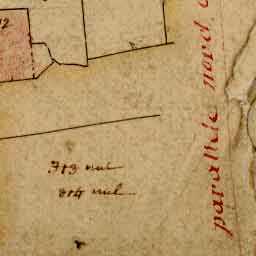 12
313 nul
314 nul
parallèle nord